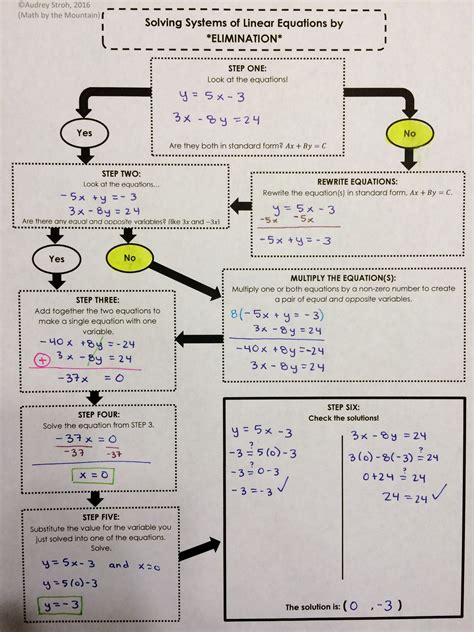 ©Audrey Stroh, 2016
(Math by the Mountain)
Solving Systems of Linear Equations by
*ELIMINATION*
STEP ONE:
Look at the equations!
y = 5x - 3
3x - 8y = 24
Are they both in standard form? Ax + By = C
Yes
No
STEP TWO:
Look at the equations...
-5x + y = -3
3x - 8y = 24
Are there any equal and opposite variables? (like 3x and -3x)
REWRITE EQUATIONS:
Rewrite the equation(s) in standard form, Ax + By = C.
y = 5x - 3
-5x -5x
-5x + y = -3
Yes
No
MULTIPLY THE EQUATION(S):
Multiply one or both equations by a non-zero number to create
a pair of equal and opposite variables.
8(-5x + y = -3)
3x - 8y = 24
-40x + 8y = -24
3x - 8y = 24
STEP THREE:
Add together the two equations to
make a single equation with one
variable.
-40x + 8y = -24
+ 3x - 8y = 24
-37x = 0
STEP FOUR:
Solve the equation from STEP 3.
-37x = 0
-37 -37
x = 0
STEP FIVE:
Substitute the value for the variable you
just solved into one of the equations.
Solve.
y = 5x - 3 and x = 0
y = 5(0) - 3
y = -3
STEP SIX:
Check the solutions!
y = 5x - 3
-3 ?= 5(0) - 3
-3 ?= 0 - 3
-3 = -3 ✓
3x - 8y = 24
3(0) - 8(-3) ?= 24
0 + 24 ?= 24
24 = 24 ✓
The solution is: (0 , -3)